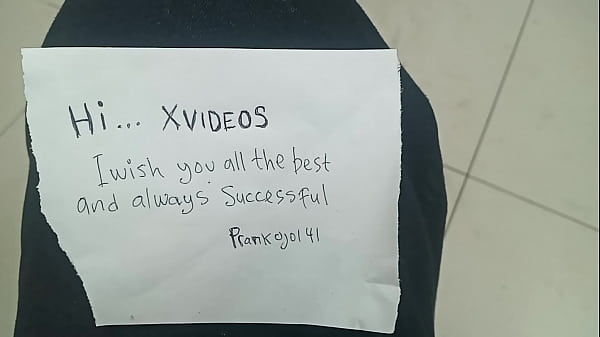 Hi... XVIDEOS
I wish you all the best
and always Successful
Prankojol41